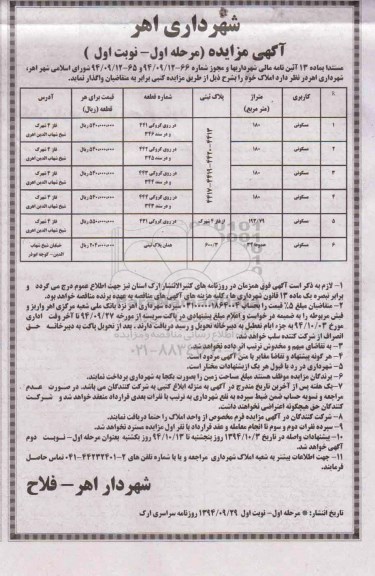 شهرداری اهر
آگهی مزایده (مرحله اول - نوبت اول )
مستندا بماده ۱۳ آئین نامه مالی شهرداریها و مجوز شماره ۶۶-۹۴/۰۹/۱۲ و ۶۵-۹۴/۰۹/۱۲ شورای اسلامی شهر اهر،
شهرداری اهر در نظر دارد املاک خود را بشرح ذیل از طریق مزایده کتبی برابر به متقاضیان واگذار نماید.
کاربری متراژ (متر مربع) پلاک ثبتی شماره قطعه قیمت برای هر قطعه (ریال) آدرس
۱ مسکونی ۱۸۰ در روی کروکی ۴۴۱ و در سند ۳۴۶ ۵۴۰۰۰۰۰۰۰ ریال فاز ۳ شهرک شیخ شهاب الدین اهری
۲ مسکونی ۱۸۰ در روی کروکی و در سند ۳۴۵ ۵۴۰۰۰۰۰۰۰ ریال فاز ۳ شهرک شیخ شهاب الدین اهری
۳ مسکونی ۱۸۰ در روی کروکی و در سند ۵۴۰۰۰۰۰۰۰ ریال فاز ۳ شهرک شیخ شهاب الدین اهری
۴ مسکونی ۱۸۰ در روی کروکی و در سند ۵۴۰۰۰۰۰۰۰ ریال فاز ۳ شهرک شیخ شهاب الدین اهری
۵ مسکونی ۱۹۳/۷۹ از فاز ۳ شهرک در روی کروکی فاز ۳ شهرک شیخ شهاب الدین اهری
۶ مسکونی همان پلاک ثبتی خیابان شیخ شهاب الدین - کوچه
۱- لازم به ذکر است آگهی فوق همزمان در روزنامه های کثیرالانتشار ارک استان نیز جهت اطلاع عموم درج می گردد و
برابر تبصره یک ماده ۱۳ قانون شهرداری ها، کلیه هزینه های آگهی های مناقصه به عهده برنده مناقصه خواهد بود.
۲- متقاضیان مبلغ ۵٪ قیمت را بحساب سپرده شهرداری اهر نزد بانک ملی شعبه مرکزی اهر واریز و
فیش مربوطه را به ضمیمه در خواست و اعلام مبلغ پیشنهادی در پاکت سربسته از مورخه ۹۴/۰۹/۲۷ تا آخر وقت اداری
مورخ ۹۴/۱۰/۰۳ به جزء ایام تعطیل به دبیرخانه تحویل و رسید دریافت دارند. بعد از تحویل پاکت به دبیرخانه حق
انصراف از شرکت کننده سلب خواهد شد.
۳- به تقاضای مبهم و مخدوش ترتیب اثر داده نخواهد شد.
۴- هر گونه پیشنهاد و تقاضا مغایر با متن آگهی مردود است.
۵- شهرداری در رد یا قبول هر یک از پیشنهادات مختار است.
۶- برندگان مزایده موظف هستند مبلغ مساحت زمین را بصورت یکجا به شهرداری پرداخت نمایند.
۷- یک هفته پس از آخرین تاریخ مندرج در آگهی به منزله ابلاغ کتبی به شرکت کنندگان می باشد. در صورت عدم
مراجعه و تسویه حساب ضمن ضبط سپرده به نفع شهرداری به ترتیب با نفرات بعدی قرارداد منعقد خواهد شد و شرکت
کنندگان حق هیچگونه اعتراضی نخواهند داشت.
۸- شرکت کنندگان در آگهی مزایده فرم مخصوص از واحد املاک را حتما دریافت نمایند.
۹- سپرده نفرات دوم و سوم تا انجام معامله و عقد قرارداد با نفر اول مزایده مسترد نخواهد شد.
۱۰- پیشنهادات واصله در تاریخ ۱۳۹۴/۱۰/۳ روز پنجشنبه تا ۹۴/۱۰/۱۳ روز یکشنبه بعنوان مرحله اول - نوبت دوم
آگهی خواهد شد.
۱۱- جهت اطلاعات بیشتر به شعبه املاک شهرداری مراجعه و یا با شماره تلفن های ۲-۰۴۱-۴۴۲۳۲۴۰۱ تماس حاصل
فرمایند.
شهردار اهر - فلاح
تاریخ انتشار: * مرحله اول - نوبت اول ۱۳۹۴/۰۹/۲۹ روزنامه سراسری ارک